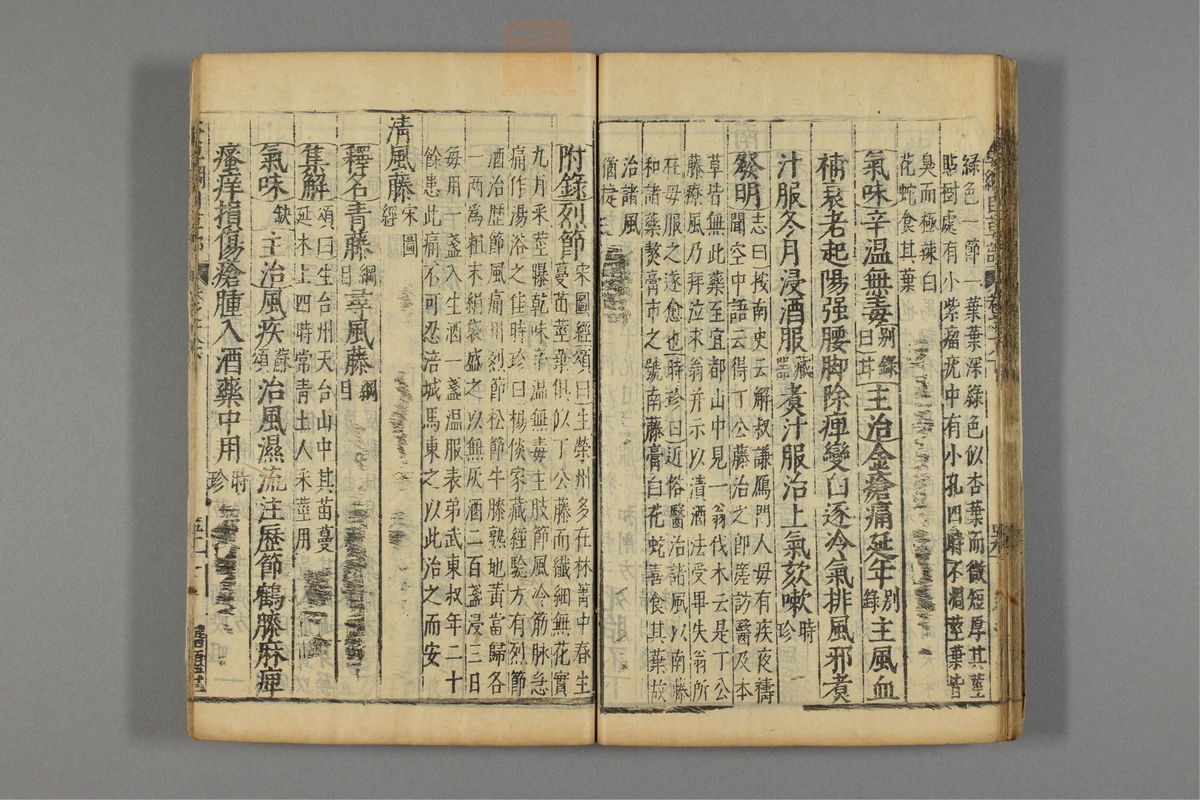 綠色一節一葉葉深綠色似杏葉而微短厚其莖
貼樹處有小紫瘤疣中有小孔四時不凋莖葉皆
臭而極辣白
花蛇食其葉
氣味辛温無毒別錄曰苷主治金瘡痛延年別錄主風血
補衰老起陽强腰脚除痺變白逐冷氣排風邪煮
汁服冬月浸酒服藏器煮汁服治上氣欬嗽時珍
發明志曰按南史云解叔謙鴈門人母有疾夜禱
聞空中語云得丁公藤治之即瘥訪醫及本
草皆無此藥至宜都山中見一翁伐木云是丁公
藤療風乃拜泣求翁并示以漬酒法受畢失翁所
在母服之遂愈也時珍曰近俗醫治諸風以南藤
和諸藥熬膏市之號南藤膏白花蛇喜食其葉故
治諸風
猶捷
附錄烈節宋圖經頌曰生榮州多在林箐中春生
蔓苗莖葉俱似丁公藤而纖細無花實
九月采莖曝乾味辛温無毒主肢節風冷筋脉急
痛作湯浴之佳時珍曰楊倓家藏經驗方有烈節
酒治歷節風痛用烈節松節牛膝熟地黄當歸各
一兩爲粗末絹袋盛之以無灰酒二百盞浸三日
每用一盞入生酒一盞温服表弟武東叔年二十
餘患此痛不可忍涪城馬東之以此治之而安
清風藤宋圖經
釋名青藤綱目尋風藤綱目
集解頌曰生台州天台山中其苗蔓
延木上四時常青土人采莖用
氣味缺主治風疾蘇頌治風濕流注歷節鶴膝麻痺
瘙痒損傷瘡腫入酒藥中用時珍